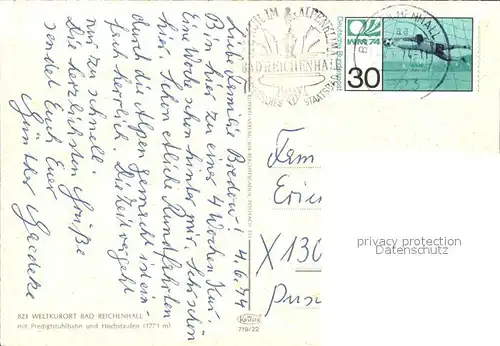 Liebe Familie Bredow! 4.6.74
Bin hier zu einer 4 Wochen Kur.
Eine Woche schon hinter mir. Schi schon
hier. Schon etliche Rundfahrten
durch die Alpen gemacht ist ein-
fach herrlich. Die Zeit vergeht
nur zu schnell.
Die herzlichsten Grüße
sendet Euch Euer
Günther Gaedeke
823 WELTKURORT BAD REICHENHALL
mit Predigtstuhlbahn und Hochstaufen (1771 m)
719/22
IM ALPENKLIMA
BAD REICHENHALL
BAYERISCHES STAATSBAD
REICHENHALL
Deutsche Bundespost
WM 74
30
Fam
Eric
X 130
privacy protection
oldthing.com